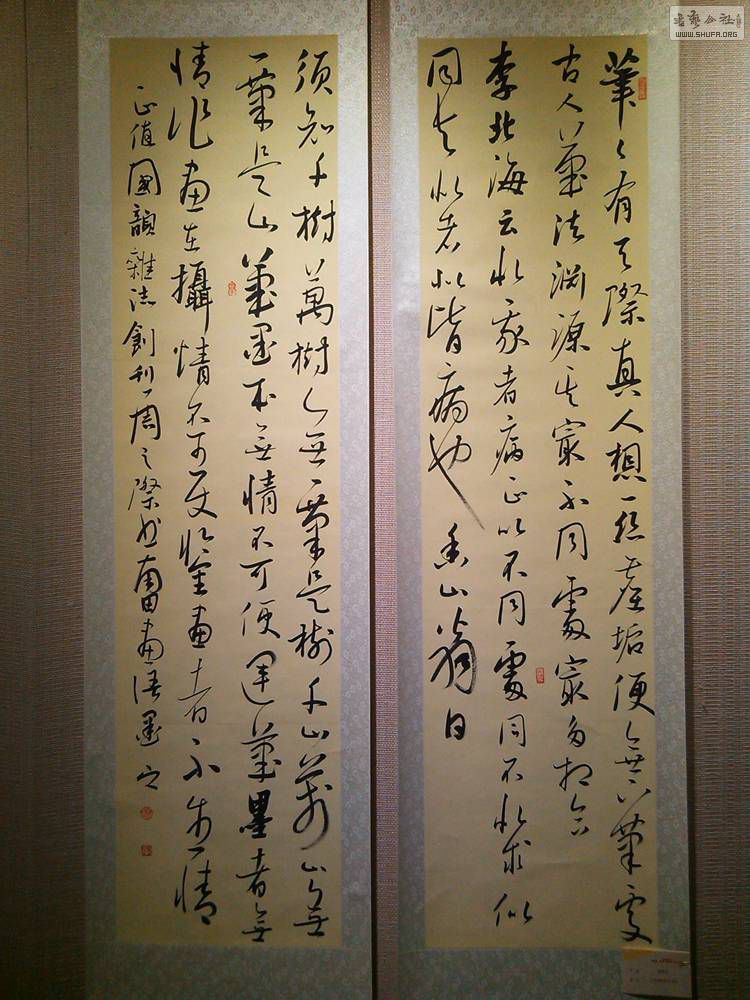 書藝公社
WWW.SHUFA.ORG
筆々有天際真人想一絲塵垢便無下筆處
古人筆法淵源其最不同處最多相合
李北海云似我者病正以不同處同不似求似
同與似者皆病也 香山翁曰
須知千樹萬樹無一筆是樹千山萬山無
一筆是山筆墨本無情不可使運筆墨者無
情作畫在攝情不可使鑒畫者不生情
正值國韻雜誌創刊一周之際書南田畫語